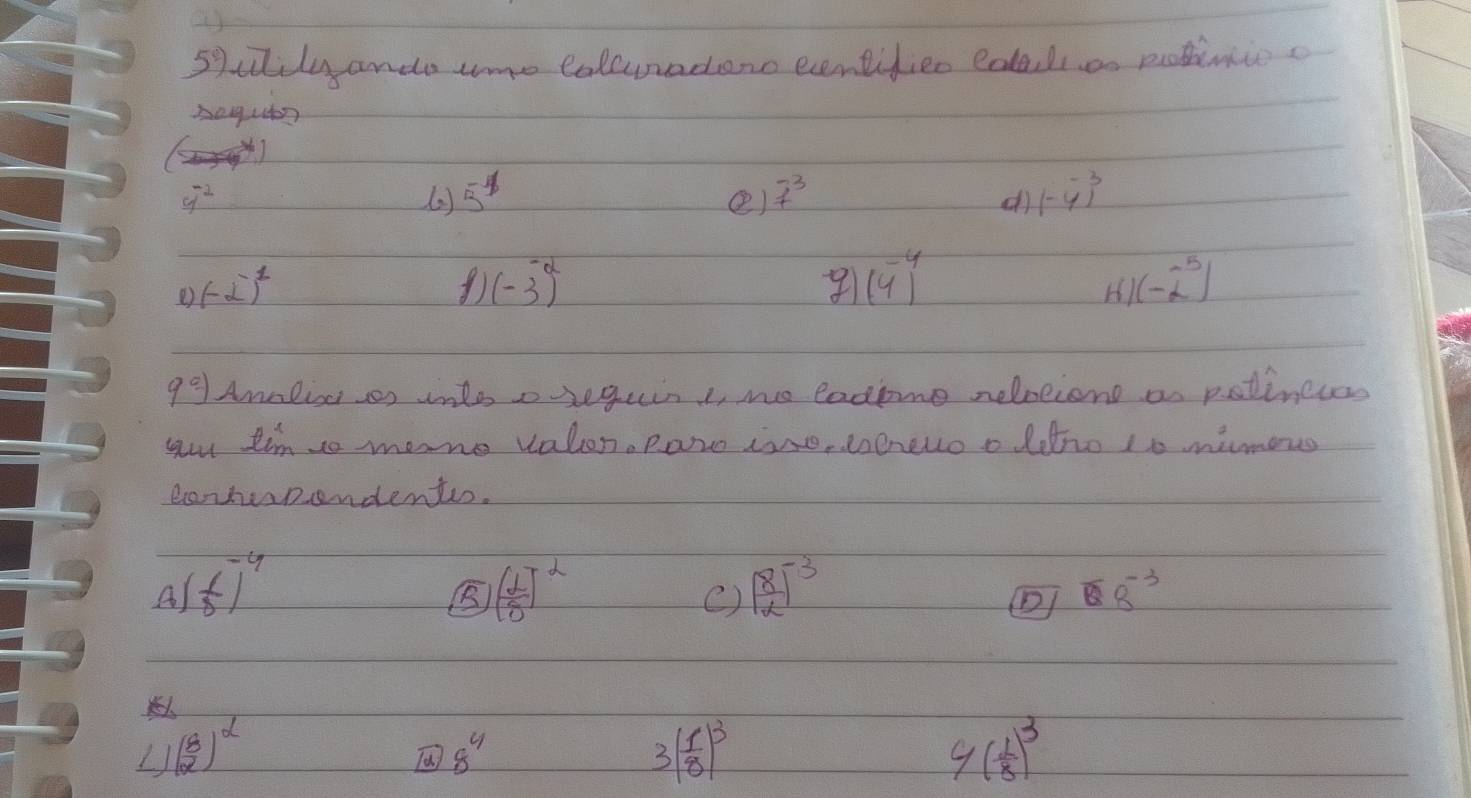 5º) utilizando uma calcuradora científica calcule as potências a
seguir
4⁻² b) 5⁻⁴ c) 7⁻³ d) (-4)⁻³
e) (-2)⁻¹ f) (-3)⁻² g) (4)⁻⁴ H) (-2⁻⁵)
9º) Analise os intes a seguir e, no caderno relacione as potências
que têm o mesmo valor. Para isso, escreva a letra e o número
correspondentes.
A) (1/8)⁻⁴ B) (1/8)² C) (8/2)⁻³ D) 8⁻³
1) (8/2)² 2) 8⁴ 3 (1/8)³ 4 (1/8)³